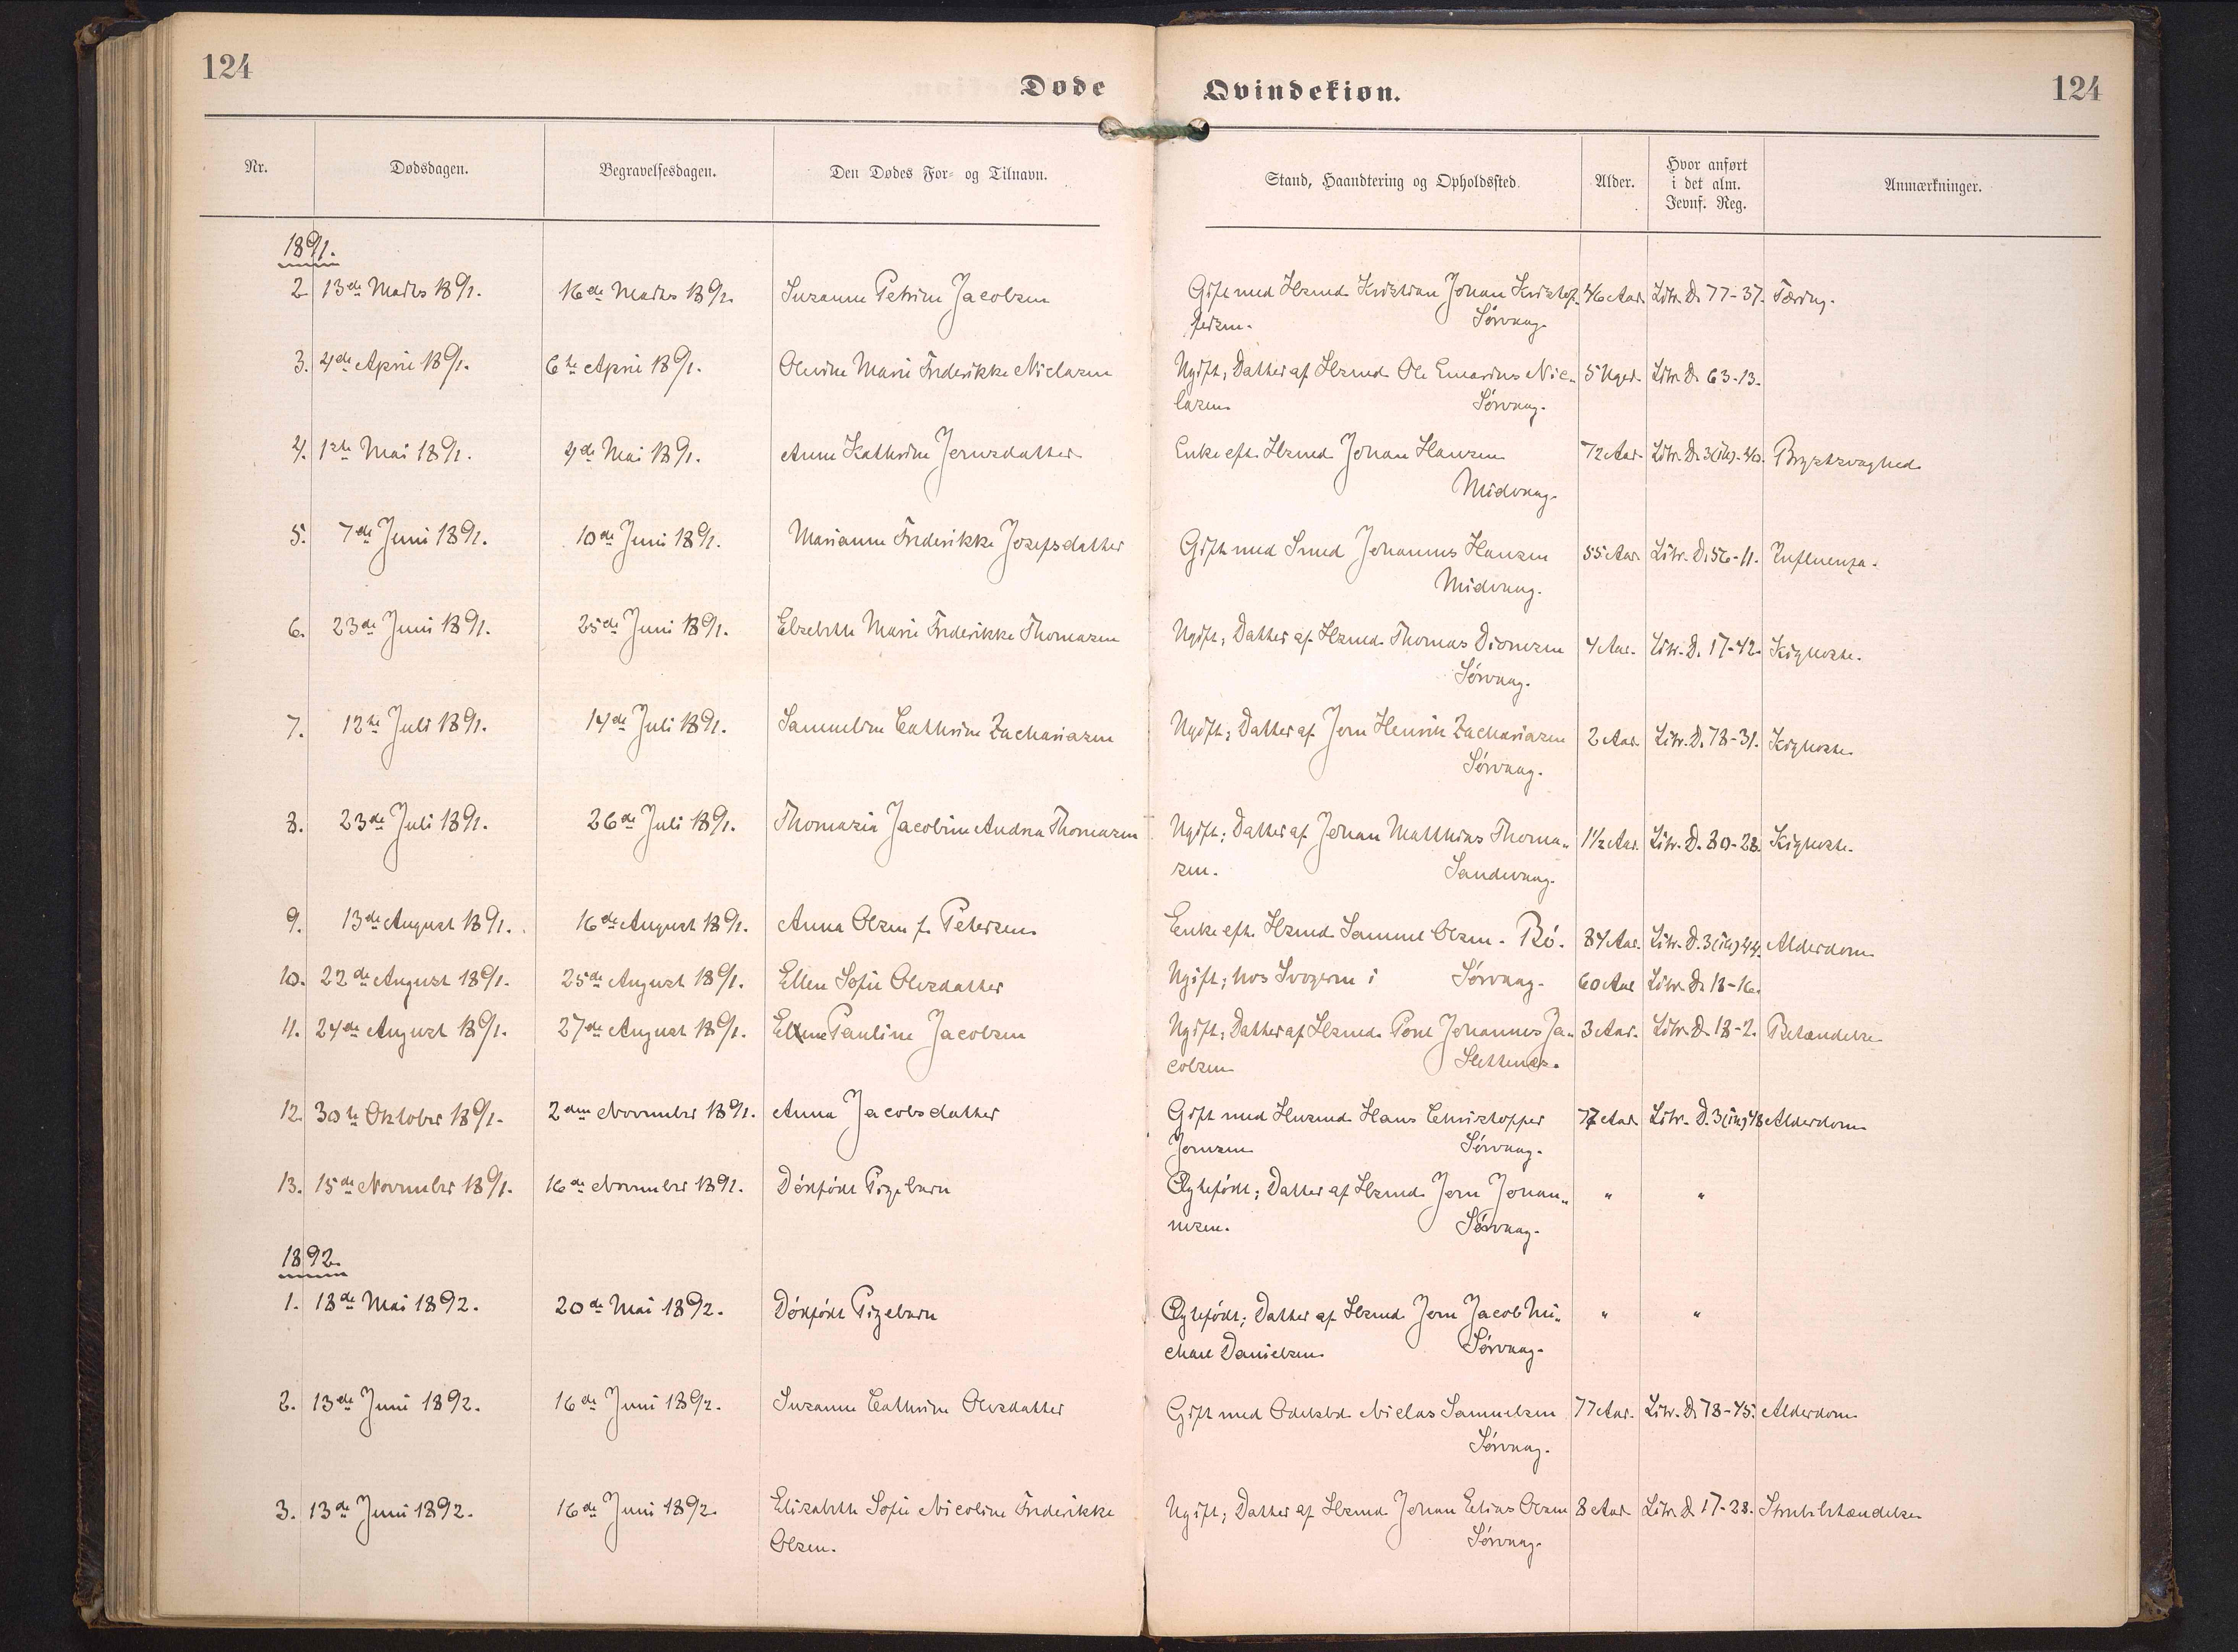 124
124
Døde
Qvindekiøn.
Nr.
Dødsdagen.
Begravelsesdagen.
Den Dødes For- og Tilnavn.
Stand, Haandtering og Opholdssted.
Alder.
Hvor anført
i det alm.
Jevnf. Reg.
Anmærkninger.
1891.
2. 13de Marts 1891. 16de Marts 1891. Susanne Petrine Jacobsen Gift med Hsmd. Kristian Johan Kristof- 46 Aar. Litr. D. 77-37. Tæring.
fersen. Sørvaag.
3. 4de April 1891. 6te April 1891. Olevine Marie Frederikke Niclasen Ugift, Datter af Hsmd. Ole Enearius Nic- 5 Uger. Litr. D. 63-13.
lasen. Sørvaag.
4. 1ste Mai 1891. 4de Mai 1891. Anne Kathrine Joensdatter Enke eft. Hsmd. Johan Hansen 72 Aar. Litr. D. 3(ih)-40. Brystsvaghed.
Midvaag.
5. 7de Juni 1891. 10de Juni 1891. Marianne Frederikke Josefsdatter Gift med Smed Johannes Hansen 55 Aar. Litr. D. 56-11. Influenza.
Midvaag.
6. 23de Juni 1891. 25de Juni 1891. Elsebeth Marie Frederikke Thomasen Ugift, Datter af Hsmd. Thomas Dionesen 4 Aar. Litr. D. 17-42. Kighoste.
Sørvaag.
7. 12te Juli 1891. 14de Juli 1891. Sammeline Cathrine Zachariasen Ugift; Datter af Joen Henrik Zachariasen 2 Aar. Litr. D. 78-31. Kighoste.
Sørvaag.
8. 23de Juli 1891. 26de Juli 1891. Thomasia Jacobine Andrea Thomasen Ugift; Datter af Johan Matthias Thoma- 1½ Aar. Litr. D. 80-28. Kighoste.
sen. Sandevaag.
9. 13de August 1891. 16de August 1891. Anna Olsen f. Petersen. Enke eft. Hsmd. Sammel Olsen. Bø. 84 Aar. Litr. D. 3(ih)44. Alderdom
10. 22de August 1891. 25de August 1891. Ellen Sofie Olesdatter Ugift; hos Svogeren i Sørvaag. 60 Aar Litr. D. 18-16.
11. 24de August 1891. 27de August 1891. Pauline Jacobsen Ugift, Datter af Hsmd. Poul Johannes Ja- 3 Aar. Litr. D. 18-2. Betændelse
cobsen Slettenæs.
12. 30te Oktober 1891. 2den November 1891. Anna Jacobsdatter Gift med Husmd. Hans Christopher 77 Aar. Litr. D. 3(ih)48 Alderdom
Joensen Sørvaag.
13. 15de November 1891. 16de November 1891. Dødfødt Pigebarn Ægtefødt; Datter af Hsmd. Joen Johan- " "
nesen. Sørvaag.
1892.
1. 18de Mai 1892. 20de Mai 1892. Dødfødt Pigebarn Ægtefødt; Datter af Hsmd. Joen Jacob Mi- " "
chael Danielsen. Sørvaag.
2. 13de Juni 1892. 16de Juni 1892. Susanne Cathrine Olesdatter Gift med Odelsbd. Niclas Sammelsen 77 Aar. Litr. D. 78-45. Alderdom
Sørvaag.
3. 13de Juni 1892. 16de Juni 1892. Elisabeth Sofie Nicoline Frederikke Ugift; Datter af Hsmd. Johan Elias Olsen 8 Aar Litr. D. 17-28. Strubebetændelse
Olsen. Sørvaag.